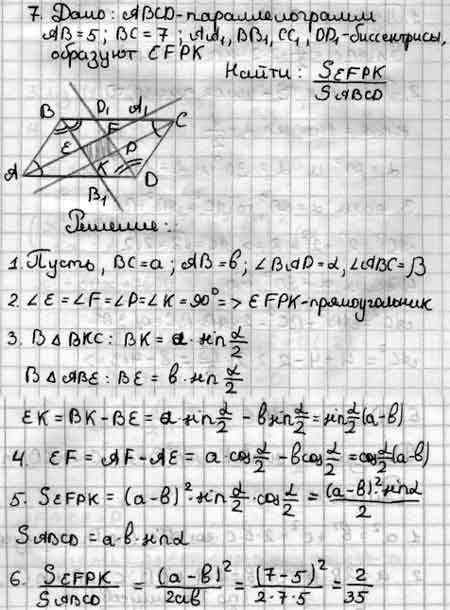 7. Дано: ABCD-параллелограмм
AB=5; BC=7; AA₁, BB₁, CC₁, DD₁-биссектрисы,
образуют EFPK
Найти: SEFPK/SABCD
B D₁ A₁ C
F
E P
A K D
B₁
Решение:
1. Пусть, BC=a; AB=b; ∠BAD=α, ∠ABC=β
2. ∠E=∠F=∠P=∠K=90°=> EFPK-прямоугольник
3. В ΔBKC: BK = a·sin α/2
В ΔABE: BE = b·sin α/2
EK = BK-BE = a·sin α/2 - b sin α/2 = sin α/2 (a-b)
4. EF = AF-AE = a·cos α/2 - b cos α/2 = cos α/2 (a-b)
5. SEFPK = (a-b)²·sin α/2 · cos α/2 = (a-b)²·sinα/2
SABCD = a·b·sinα
6. SEFPK/SABCD = (a-b)²/2ab = (7-5)²/2·7·5 = 2/35